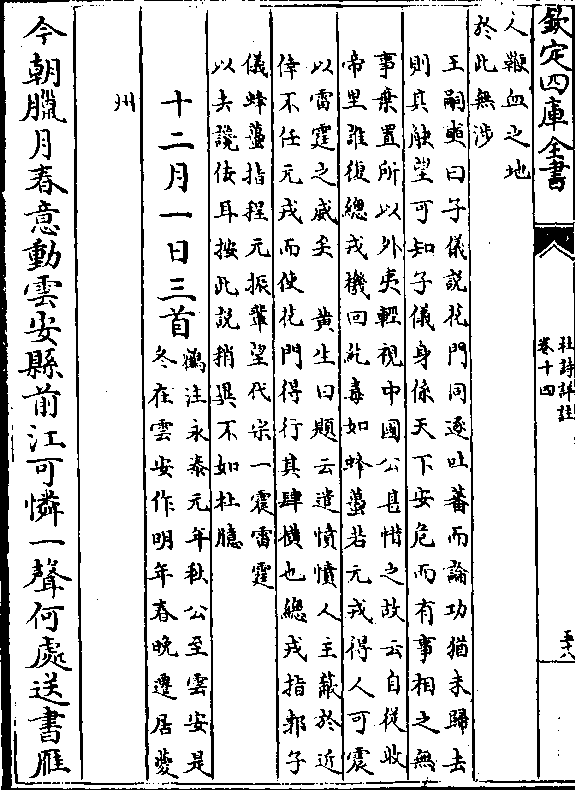 欽定四庫全書
杜詩詳註
卷十四
五十八
人鞭血之地
於此無涉
王嗣奭曰子儀說花門同逐吐蕃而論功猶未歸去
則其觖望可知子儀身係天下安危而有事相之無
事棄置所以外夷輕視中國公甚惜之故云自從收
帝里誰復總戎機回紇毒如蜂蠆若元戎得人可震
以雷霆之威矣 黄生曰題云遣憤憤人主蔽於近
倖不任元戎而使花門得行其肆橫也總戎指郭子
儀蜂蠆指程元振輩望代宗一震雷霆
以去讒佞耳按此説稍異不如杜臆
十二月一日三首
鶴注永泰元年秋公至雲安是
冬在雲安作明年春晚遷居夔
州
今朝臘月春意動雲安縣前江可憐一聲何處送書雁